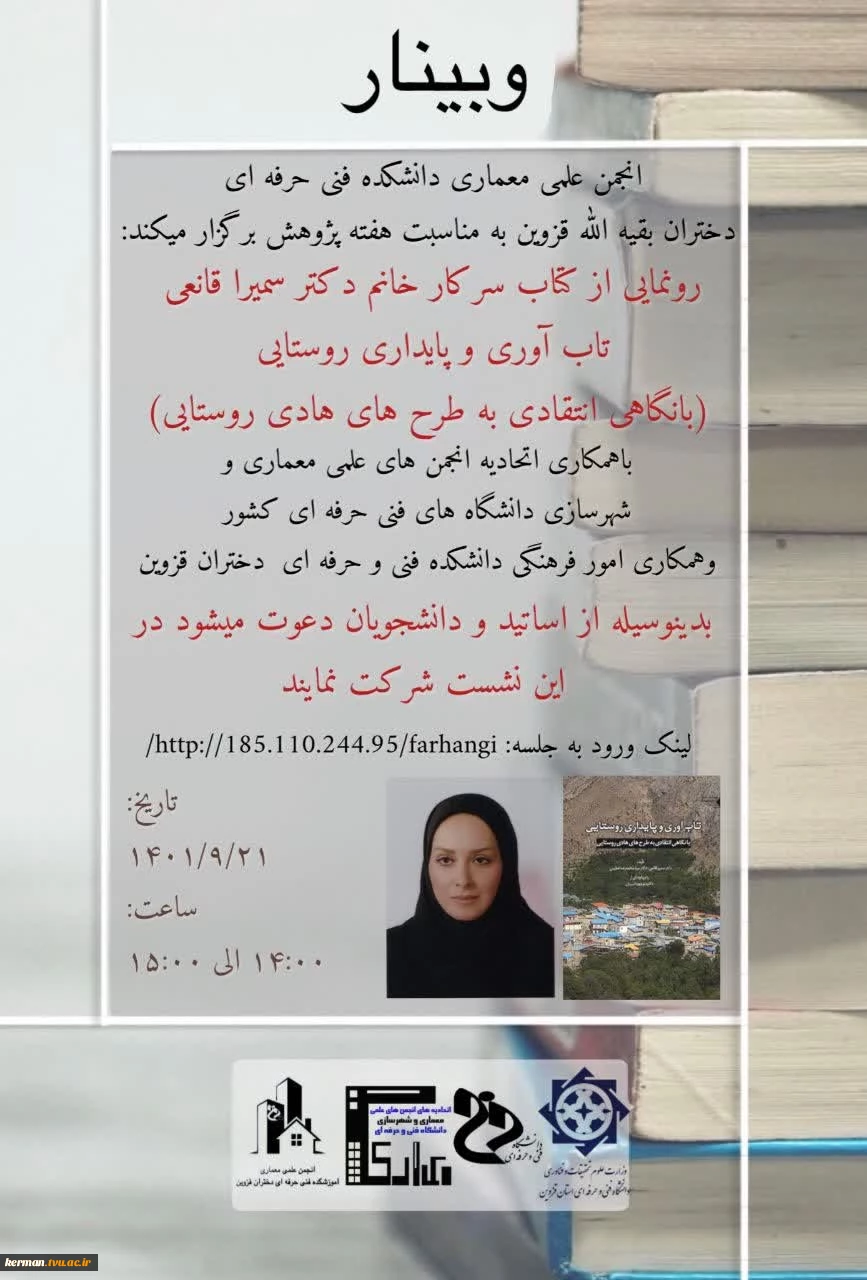 وبینار
انجمن علمی معماری دانشکده فنی حرفه ای
دختران بقیه الله قزوین به مناسبت هفته پژوهش برگزار میکند:
رونمایی از کتاب سرکار خانم دکتر سمیرا قانعی
تاب آوری و پایداری روستایی
(بانگاهی انتقادی به طرح های هادی روستایی)
باهمکاری اتحادیه انجمن های علمی معماری و
شهرسازی دانشگاه های فنی حرفه ای کشور
وهمکاری امور فرهنگی دانشکده فنی و حرفه ای دختران قزوین
بدینوسیله از اساتید و دانشجویان دعوت میشود در
این نشست شرکت نمایند
لینک ورود به جلسه: http://185.110.244.95/farhangi/
تاریخ:
۱۴۰۱/۹/۲۱
ساعت:
۱۴:۰۰ الی ۱۵:۰۰
تاب آوری و پایداری روستایی
بانگاهی انتقادی به طرح های هادی روستایی
وزارت علوم تحقیقات و فناوری
دانشگاه فنی و حرفه ای استان قزوین
دانشگاه
فنی و حرفه ای
اتحادیه های انجمن های علمی
معماری و شهرسازی
دانشگاه فنی و حرفه ای
معماری
انجمن علمی معماری
آموزشکده فنی حرفه ای دختران قزوین
kerman.tvu.ac.ir